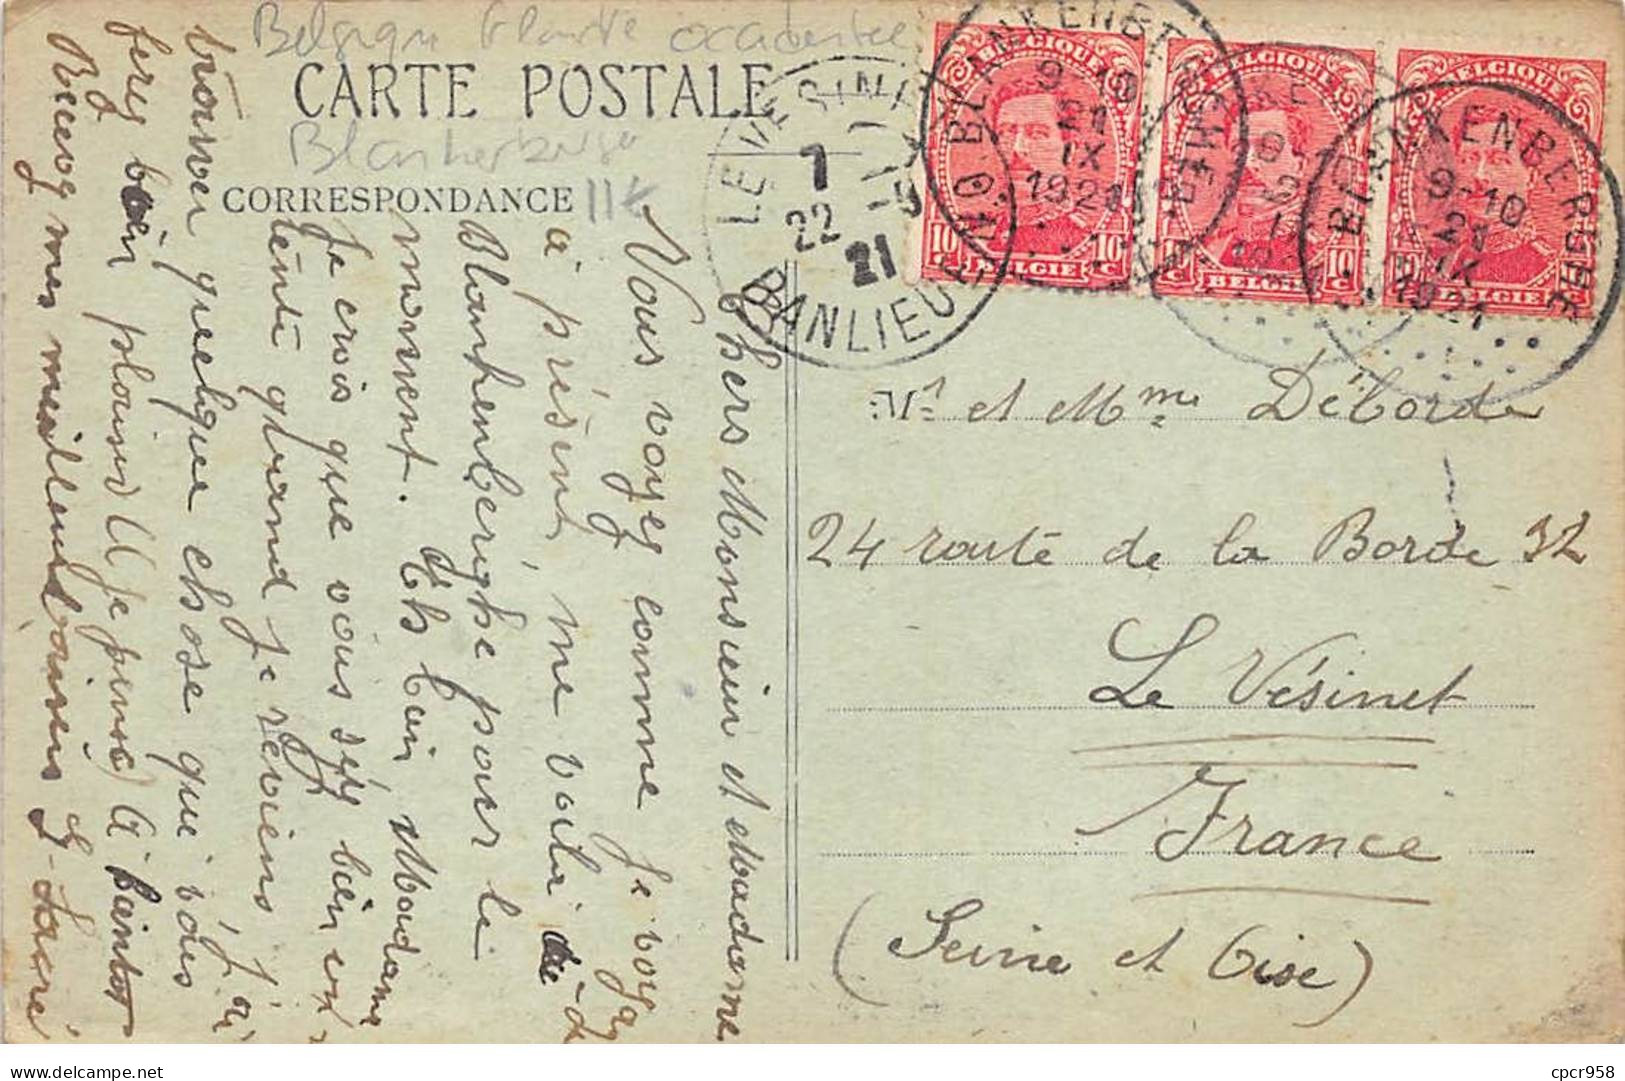 Belgique Flandre occidentale
CARTE POSTALE
Blankenberghe
CORRESPONDANCE
11€
Chers Monsieur et Madame
Vous voyez comme je voyage
à présent, me voilà
Blankenberghe pour le
moment. Eh bien, Madame
Je crois que vous
tente quand je reviens j'ai
trouver quelque chose que vous
ferez bien plaisir (je pense) A bientôt
Recevez mes meilleurs
LE VESINET
7
22
21
BANLIEUE
BLANKENBERGHE
9-10
21
IX
1921
BLANKENBERGHE
BLANKENBERGHE
9-10
21
IX
1921
BELGIQUE
10 c
BELGIE
10 c
BELGIQUE
10 c
BELGIE
10 c
BELGIQUE
BELGIE
Mr et Mme Déborde
24 route de la Borde 32
Le Vésinet
France
(Seine et Oise)
cpcr958